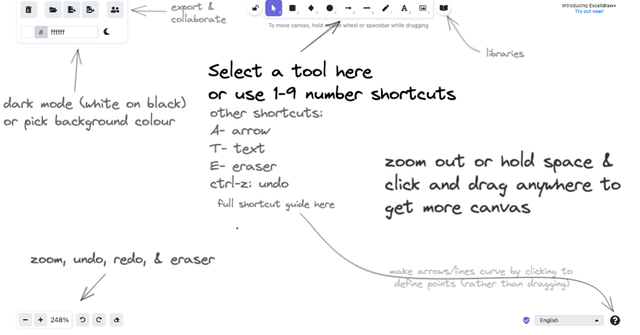 Introducing Excalidraw+
Try out now!
export &
collaborate
# ffffff
To move canvas, hold mouse wheel or spacebar while dragging
libraries
Select a tool here
or use 1-9 number shortcuts
dark mode (white on black)
or pick background colour
other shortcuts:
A- arrow
T- text
E- eraser
ctrl-z: undo
full shortcut guide here
zoom out or hold space &
click and drag anywhere to
get more canvas
zoom, undo, redo, & eraser
make arrows/lines curve by clicking to
define points (rather than dragging)
248%
English